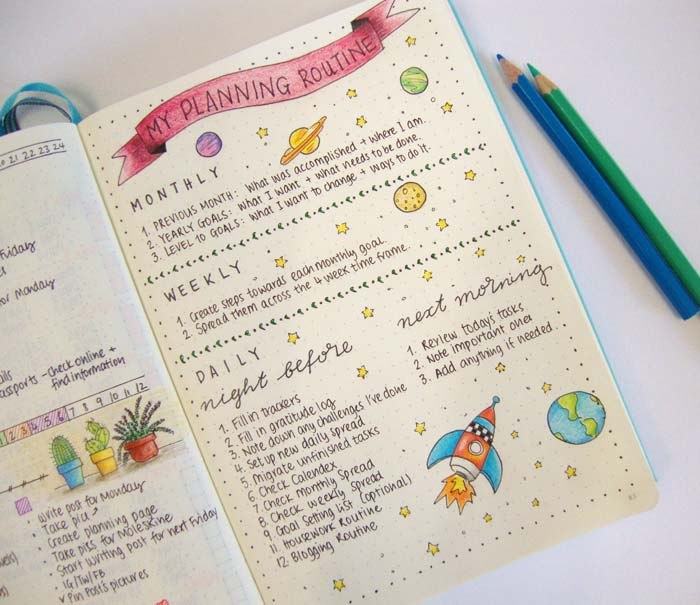 20 21 22 23 24
Friday
for Monday
-check online +
find information
2 3 4 5 6 7 8 9 10 11 12
• write post for Monday
• Take pics
• Create planning page
• Take pics for Moleskine
• Start writing post for next Friday
• IG/TW/FB
• Pin Post's pictures
MY PLANNING ROUTINE
MONTHLY
1. PREVIOUS MONTH: what was accomplished + where I am.
2. YEARLY GOALS: what I want + what needs to be done.
3. LEVEL 10 GOALS: what I want to change + ways to do it.
WEEKLY
1. Create steps towards each monthly goal.
2. Spread them across the 4 week time frame.
DAILY
night before
1. Fill in trackers
2. Fill in gratitude log
3. Note down any challenges I've done
4. Set up new daily spread
5. Migrate unfinished tasks
6. Check Calendex
7. Check monthly Spread
8. Check weekly spread
9. Goal setting list (optional)
11. Housework Routine
12. Blogging Routine
next morning
1. Review today's tasks
2. Note important ones
3. Add anything if needed